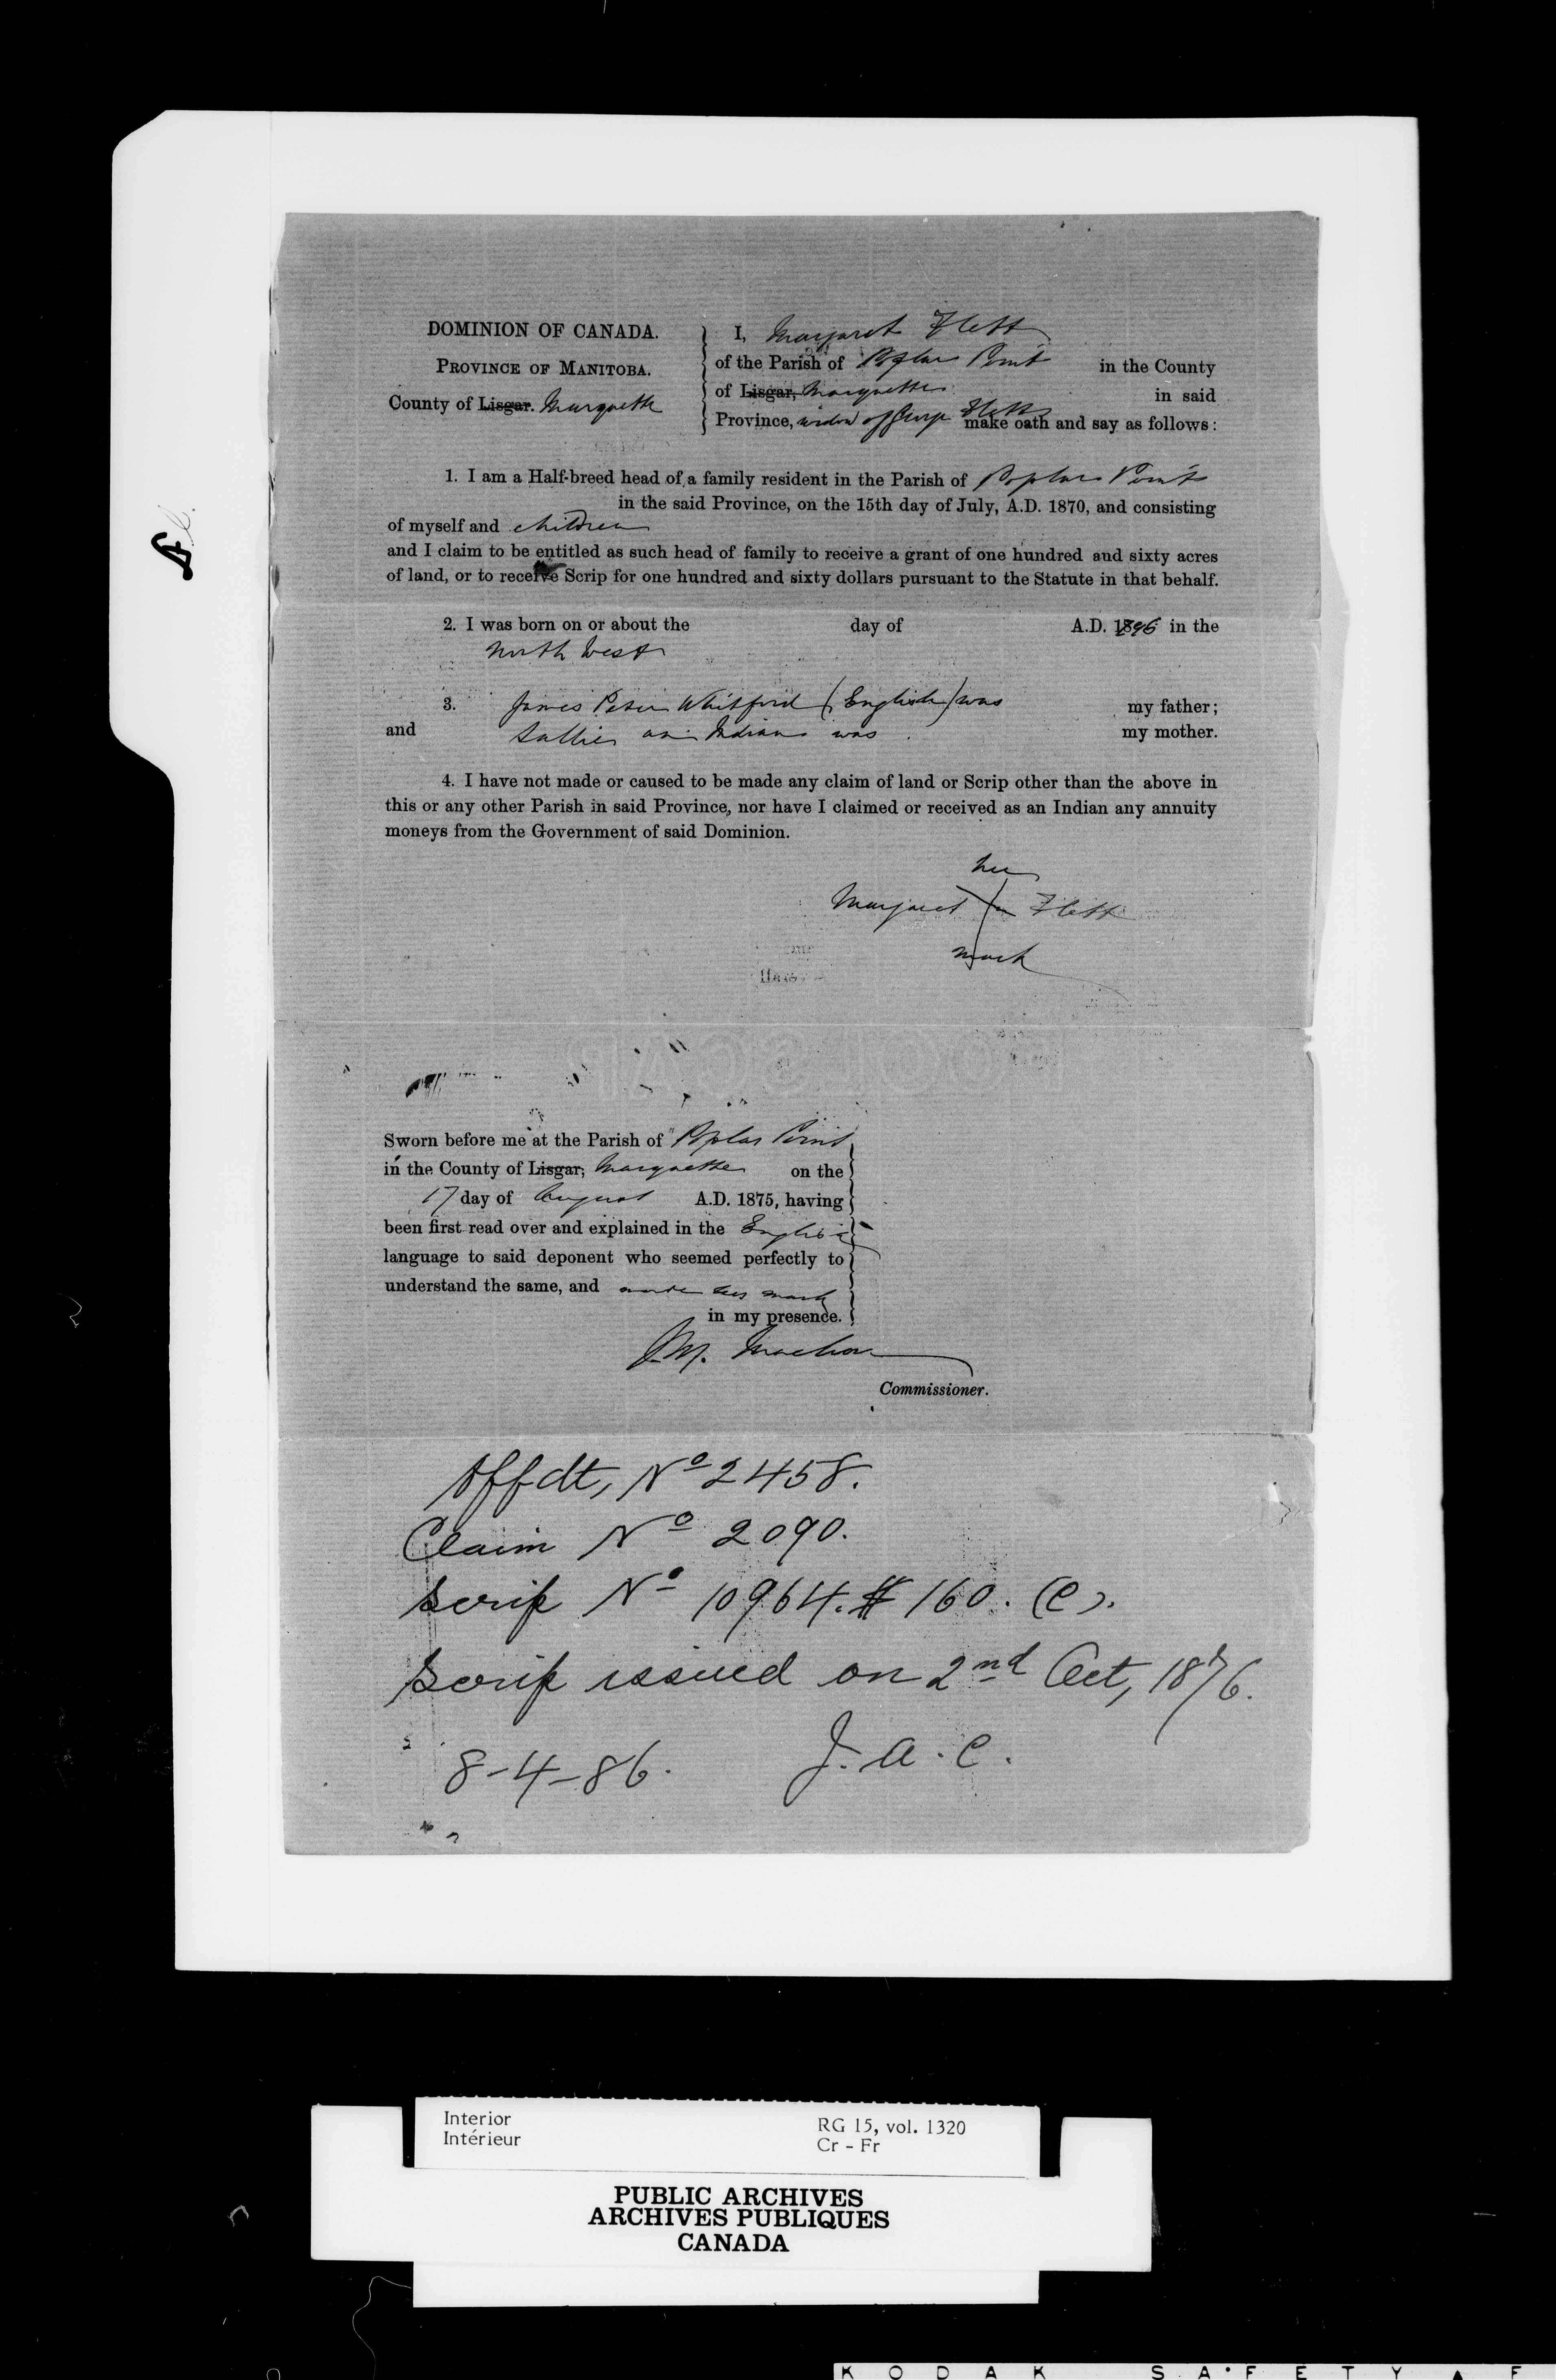 DOMINION OF CANADA.
PROVINCE OF MANITOBA.
County of Lisgar. Marquette
I, Margaret Flett
of the Parish of Poplar Point in the County
of Lisgar, Marquette in said
Province, widow of George Flett make oath and say as follows:
1. I am a Half-breed head of a family resident in the Parish of Poplar Point
in the said Province, on the 15th day of July, A.D. 1870, and consisting
of myself and children
and I claim to be entitled as such head of family to receive a grant of one hundred and sixty acres
of land, or to receive Scrip for one hundred and sixty dollars pursuant to the Statute in that behalf.
2. I was born on or about the day of A.D. 1796 in the
North West
3. James Peter Whitford (English) was my father;
and Sallie an Indian was my mother.
4. I have not made or caused to be made any claim of land or Scrip other than the above in
this or any other Parish in said Province, nor have I claimed or received as an Indian any annuity
moneys from the Government of said Dominion.
her
Margaret X Flett
mark
FOOLSCAP
Sworn before me at the Parish of Poplar Point
in the County of Lisgar, Marquette on the
17 day of August A.D. 1875, having
been first read over and explained in the English
language to said deponent who seemed perfectly to
understand the same, and made her mark
in my presence.
Commissioner.
Affdt, No 2458.
Claim No 2090.
Scrip No 10964. $160. (C).
Scrip issued on 2nd Oct, 1876.
8-4-86. J. A. C.
Interior
Intérieur
RG 15, vol. 1320
Cr - Fr
PUBLIC ARCHIVES
ARCHIVES PUBLIQUES
CANADA
KODAK SAFETY F